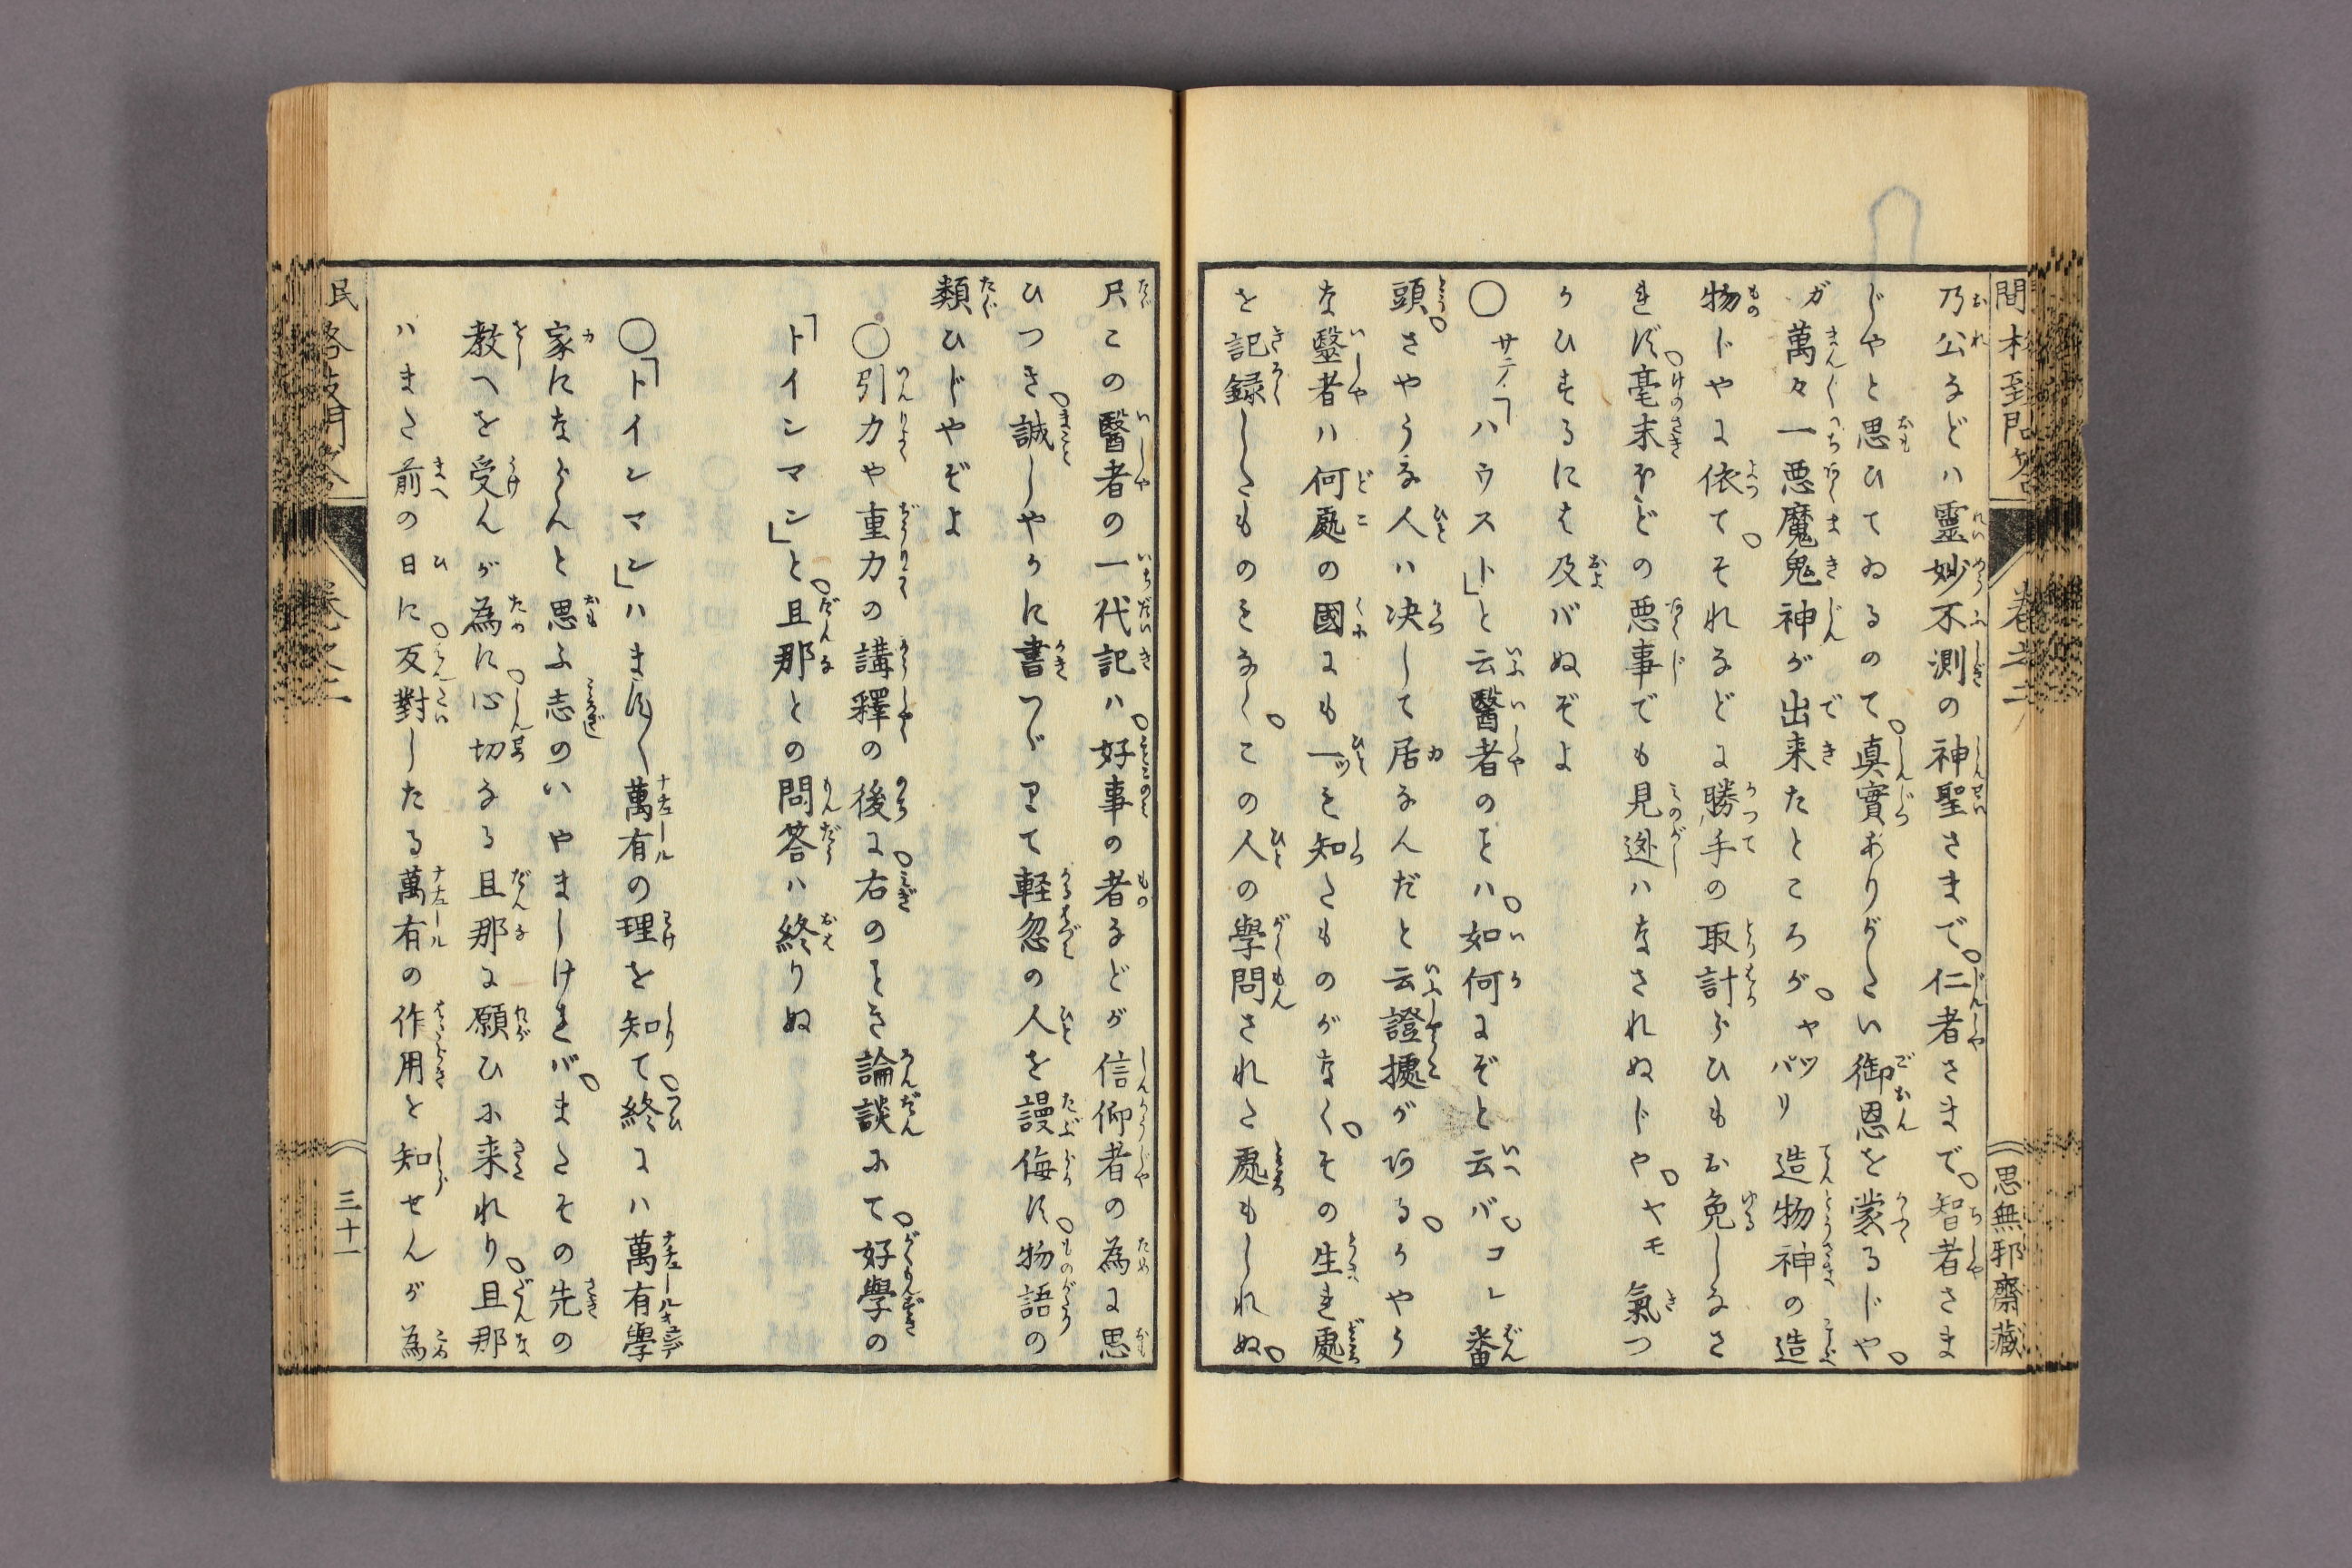 乃公などハ靈妙不測の神聖さまで。仁者さまで。智者さま
じやと思ひてゐるのて。真實ありがたい御恩を蒙るじや。
ガ萬々一悪魔鬼神が出来たところが。ヤツパリ造物神の造
物じやに依て。それなどに勝手の取計らひもお免しなさ
れず。毫末ほどの悪事でも見迯ハなされぬじや。ヤモ氣つ
かひするにも及バぬぞよ
〇サテ「ハウスト」と云醫者のことハ。如何にぞと云バ。コレ番
頭。さやうな人ハ决して居なんだと云證據が有る。かやう
な醫者ハ何處の國にも一ッを知たものがなく。その生れ處
を記録したものもなく。この人の學問された處もしれぬ。
只この醫者の一代記ハ。好事の者などが信仰者の為に思
ひつき。誠しやかに書つゞりて軽忽の人を謾侮す。物語の
類ひじやぞよ
〇引力や重力の講釋の後に。右のごとき論談にて。好學の
「トインマン」と。旦那との問答ハ終りぬ
〇「トインマン」ハます〳〵萬有の理を知て。終にハ萬有學
家にならんと思ふ志のいやましけれバ。またその先の
教へを受んが為に。心切なる旦那に願ひに来れり。旦那
ハまた前の日に。反對したる萬有の作用を知せんが為
卷之二
思無邪齋藏
三十一